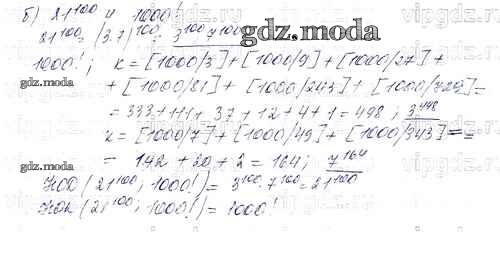 б) 21^100 и 1000!
21^100 = (3·7)^100 = 3^100·7^100
gdz.moda
1000!; k = [1000/3] + [1000/9] + [1000/27] +
gdz.moda
+ [1000/81] + [1000/243] + [1000/729] =
= 333 + 111 + 37 + 12 + 4 + 1 = 498; 3^498
k = [1000/7] + [1000/49] + [1000/343] = =
gdz.moda
= 142 + 20 + 2 = 164; 7^164
НОД (21^100; 1000!) = 3^100·7^100 = 21^100
НОК (21^100; 1000!) = 1000!